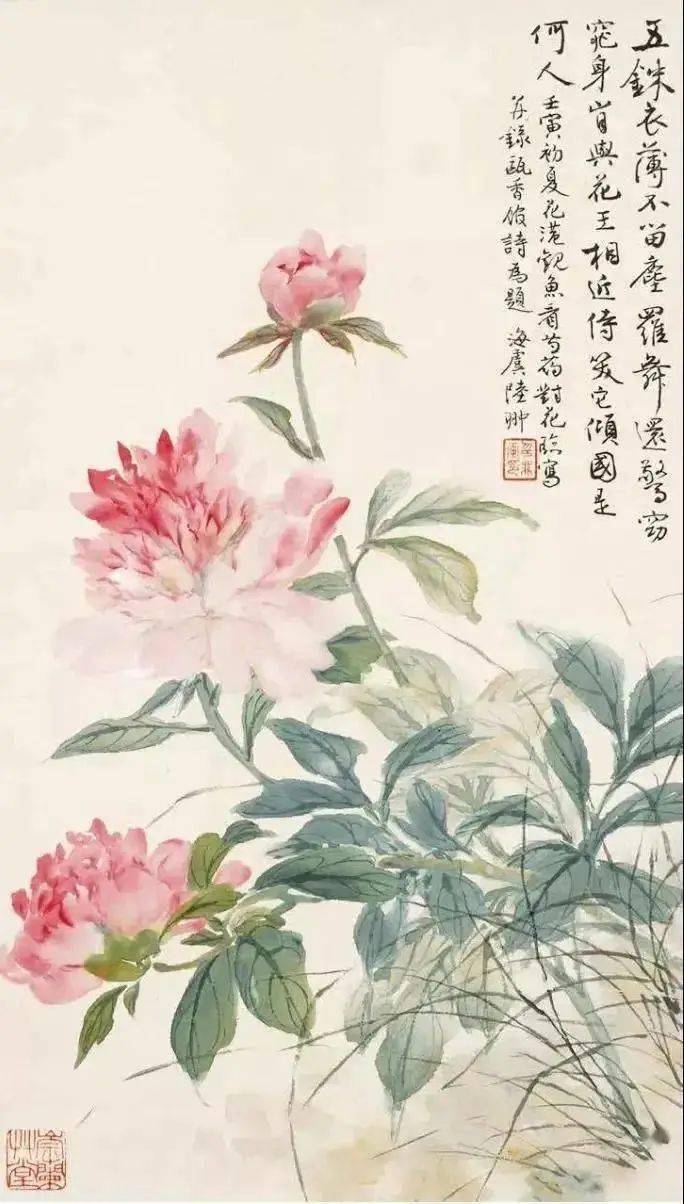 五銖衣薄不留塵羅舞還驚窈
窕身肯與花王相近侍笑它傾國是
何人 壬寅初夏花港觀魚看芍藥對花臨寫
并錄甌香館詩為題 海虞陸翀
崇蘭
艸堂